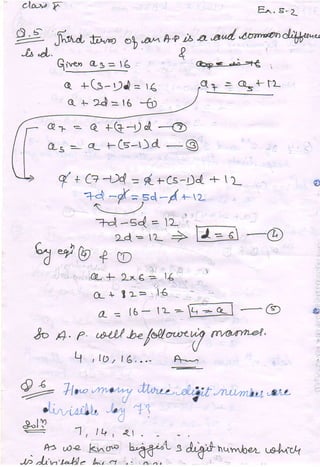 class 8
Ex. 5-2
Q.5 Third term of an A P is a and common difference
is d.
Given a₃ = 16 &
a + (3-1)d = 16 a₇ = a₅ + 12
a + 2d = 16 -①
a₇ = a + (7-1)d -②
a₅ = a + (5-1)d -③
a + (7-1)d = a + (5-1)d + 12
7d - d = 5d - d + 12
7d - 5d = 12
2d = 12 ⇒ d = 6 -④
by eqⁿ ④ & ①
a + 2×6 = 16
a + 12 = 16
a = 16 - 12 = 4 = a -⑤
So A. P. will be following manner.
4, 10, 16.... Ans
Q 6 How many three-digit numbers are
divisible by 7?
Solⁿ 7, 14, 21 . . . .
As we know biggest 3 digit number which
is divisible by 7